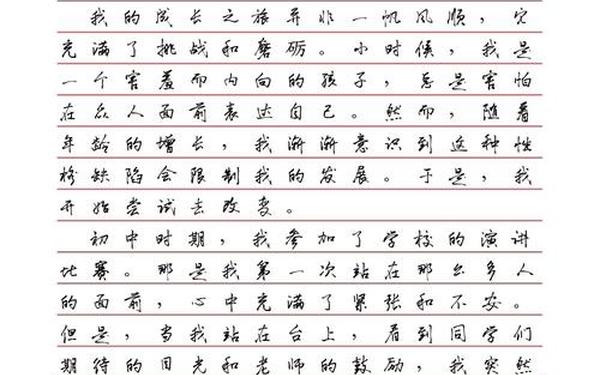 我的成长之旅并非一帆风顺，它
充满了挑战和磨砺。小时候，我是
一个害羞而内向的孩子，总是害怕
在众人面前表达自己。然而，随着
年龄的增长，我渐渐意识到这种性
格缺陷会限制我的发展。于是，我
开始尝试去改变。
初中时期，我参加了学校的演讲
比赛。那是我第一次站在那么多人
的面前，心中充满了紧张和不安。
但是，当我站在台上，看到同学们
期待的目光和老师的鼓励，我突然